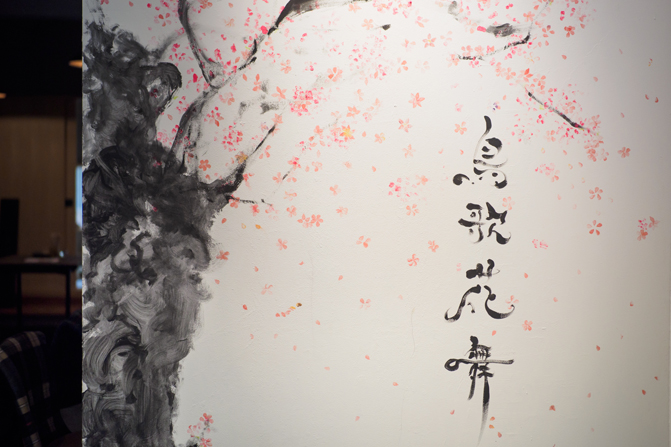 鳥歌花舞